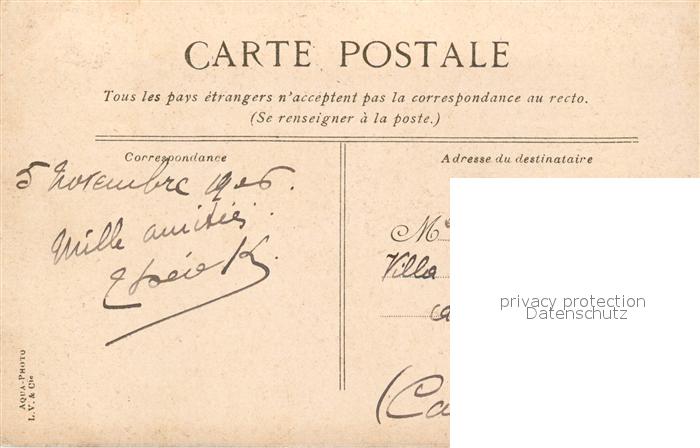 CARTE POSTALE
Tous les pays étrangers n'acceptent pas la correspondance au recto.
(Se renseigner à la poste.)
Correspondance
Adresse du destinataire
5 Novembre 1906.
Mille amitiés.
M
Villa
(Ca
privacy protection
Datenschutz
AQUA-PHOTO
L. V. & Cie